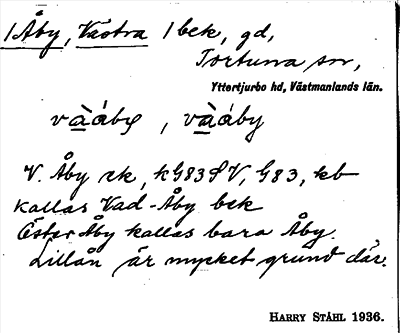 1 Åby, Västra 1 bek, gd,
Tortuna sn,
Yttertjurbo hd, Västmanlands län.
vàáby, vàáby
V. Åby ek, kG83SV, G83, kb
kallas Vad-Åby bek
Öster Åby kallas bara Åby.
Lillån är mycket grund där.
HARRY STÅHL 1936.